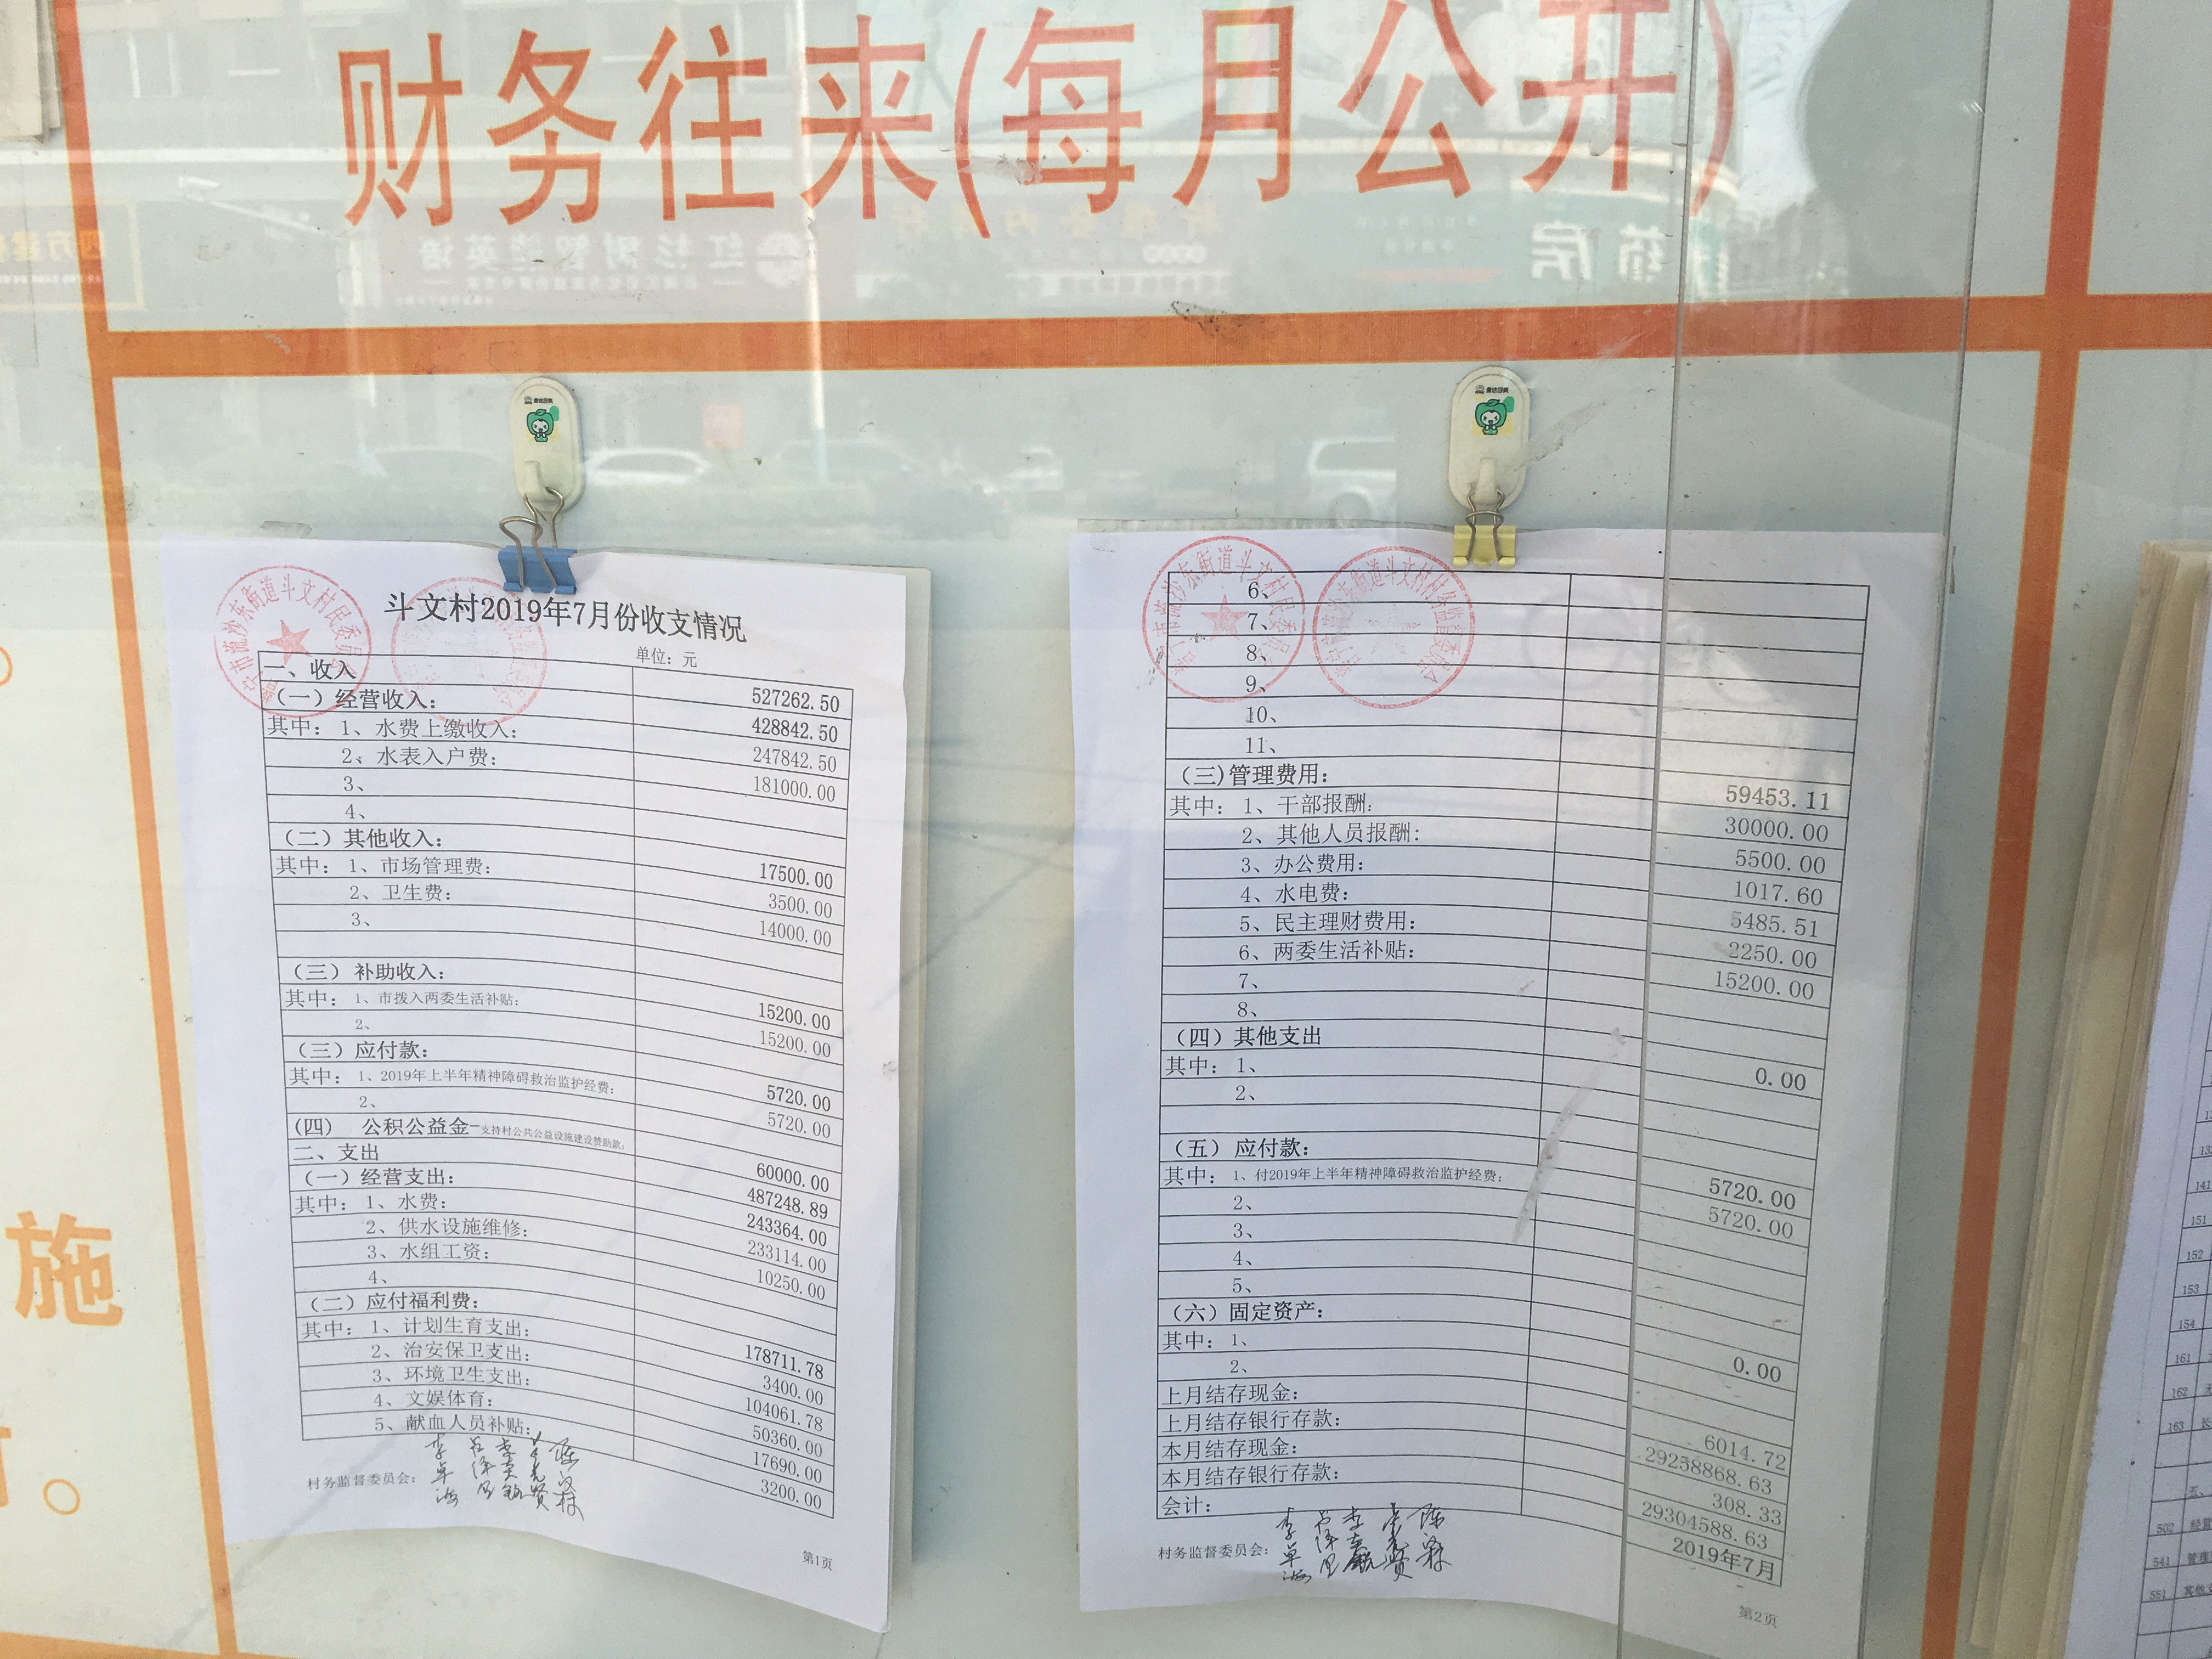 财务往来(每月公开)
斗文村2019年7月份收支情况
单位：元
一、收入 527262.50
（一）经营收入： 428842.50
其中：1、水费上缴收入： 247842.50
2、水表入户费： 181000.00
3、
4、
（二）其他收入： 17500.00
其中：1、市场管理费： 3500.00
2、卫生费： 14000.00
3、
（三）补助收入： 15200.00
其中：1、市拨入两委生活补贴： 15200.00
2、
（三）应付款： 5720.00
其中：1、2019年上半年精神障碍救治监护经费： 5720.00
2、
(四) 公积公益金-支持村公共公益设施建设赞助款： 60000.00
二、支出 487248.89
（一）经营支出： 243364.00
其中：1、水费： 233114.00
2、供水设施维修： 10250.00
3、水组工资：
4、
（二）应付福利费： 178711.78
其中：1、计划生育支出： 3400.00
2、治安保卫支出： 104061.78
3、环境卫生支出： 50360.00
4、文娱体育： 17690.00
5、献血人员补贴： 3200.00
村务监督委员会：
第1页
6、
7、
8、
9、
10、
11、
（三)管理费用： 59453.11
其中：1、干部报酬： 30000.00
2、其他人员报酬： 5500.00
3、办公费用： 1017.60
4、水电费： 5485.51
5、民主理财费用： 2250.00
6、两委生活补贴： 15200.00
7、
8、
（四）其他支出 0.00
其中：1、
2、
（五）应付款： 5720.00
其中：1、付2019年上半年精神障碍救治监护经费： 5720.00
2、
3、
4、
5、
（六）固定资产： 0.00
其中：1、
2、
上月结存现金： 6014.72
上月结存银行存款： 29258868.63
本月结存现金： 308.33
本月结存银行存款： 29304588.63
会计： 2019年7月
村务监督委员会：
第2页
施